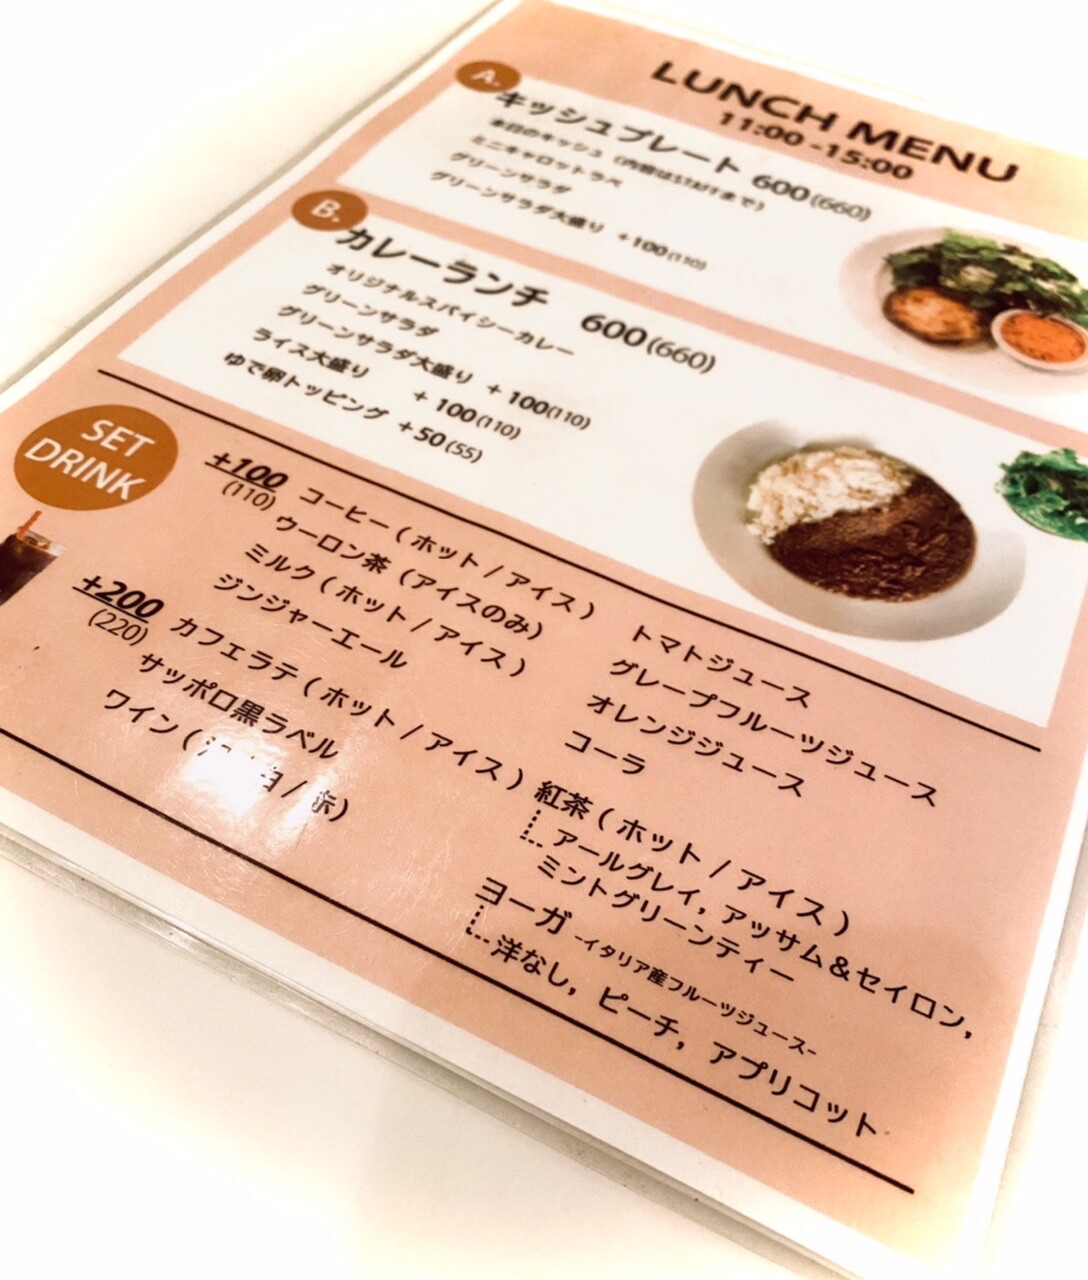 LUNCH MENU
11:00 -15:00
A.
キッシュプレート 600(660)
本日のキッシュ (内容はSTAFFまで)
ミニキャロットラペ
グリーンサラダ
グリーンサラダ大盛り +100(110)
B.
カレーランチ 600(660)
オリジナルスパイシーカレー
グリーンサラダ
グリーンサラダ大盛り + 100(110)
ライス大盛り + 100(110)
ゆで卵トッピング +50(55)
SET
DRINK
+100
(110)
コーヒー ( ホット / アイス )
ウーロン茶 (アイスのみ)
ミルク ( ホット / アイス )
ジンジャーエール
トマトジュース
グレープフルーツジュース
オレンジジュース
コーラ
+200
(220)
カフェラテ ( ホット / アイス )
サッポロ黒ラベル
ワイン ( 白 / 赤)
紅茶 ( ホット / アイス )
アールグレイ, アッサム&セイロン,
ミントグリーンティー
ヨーガ -イタリア産フルーツジュース-
洋なし, ピーチ, アプリコット